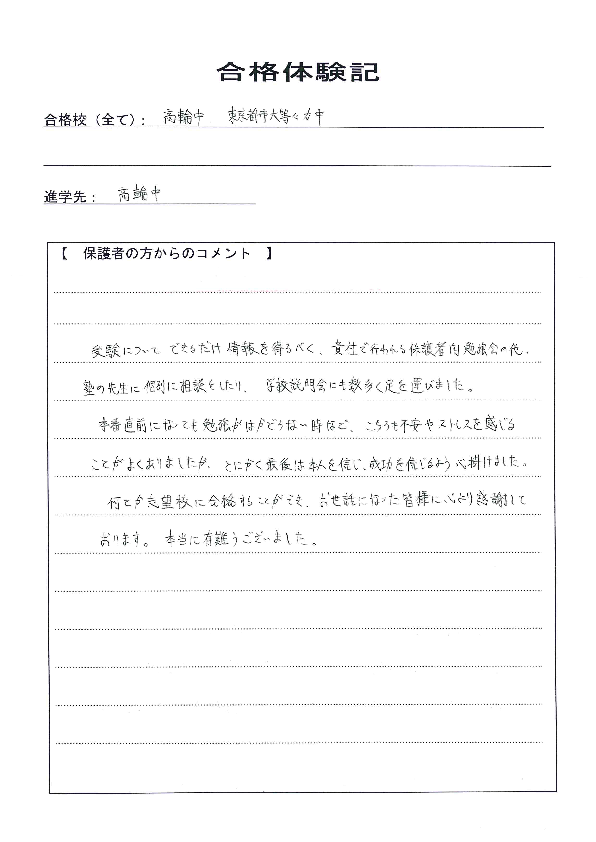 合格体験記
合格校（全て）： 高輪中 東京都市大等々力中
進学先： 高輪中
【 保護者の方からのコメント 】
受験について できるだけ 情報を得るべく、貴社で行われる保護者向勉強会の他、
塾の先生に個別に相談をしたり、 学校説明会にも数多く足を運びました。
本番直前になっても勉強がはかどらない時など、こちらも不安やストレスを感じる
ことがよくありましたが、とにかく最後は本人を信じ、成功を信じるよう心掛けました。
何とか志望校に合格することができ、お世話になった皆様に心より感謝して
おります。 本当に有難うございました。